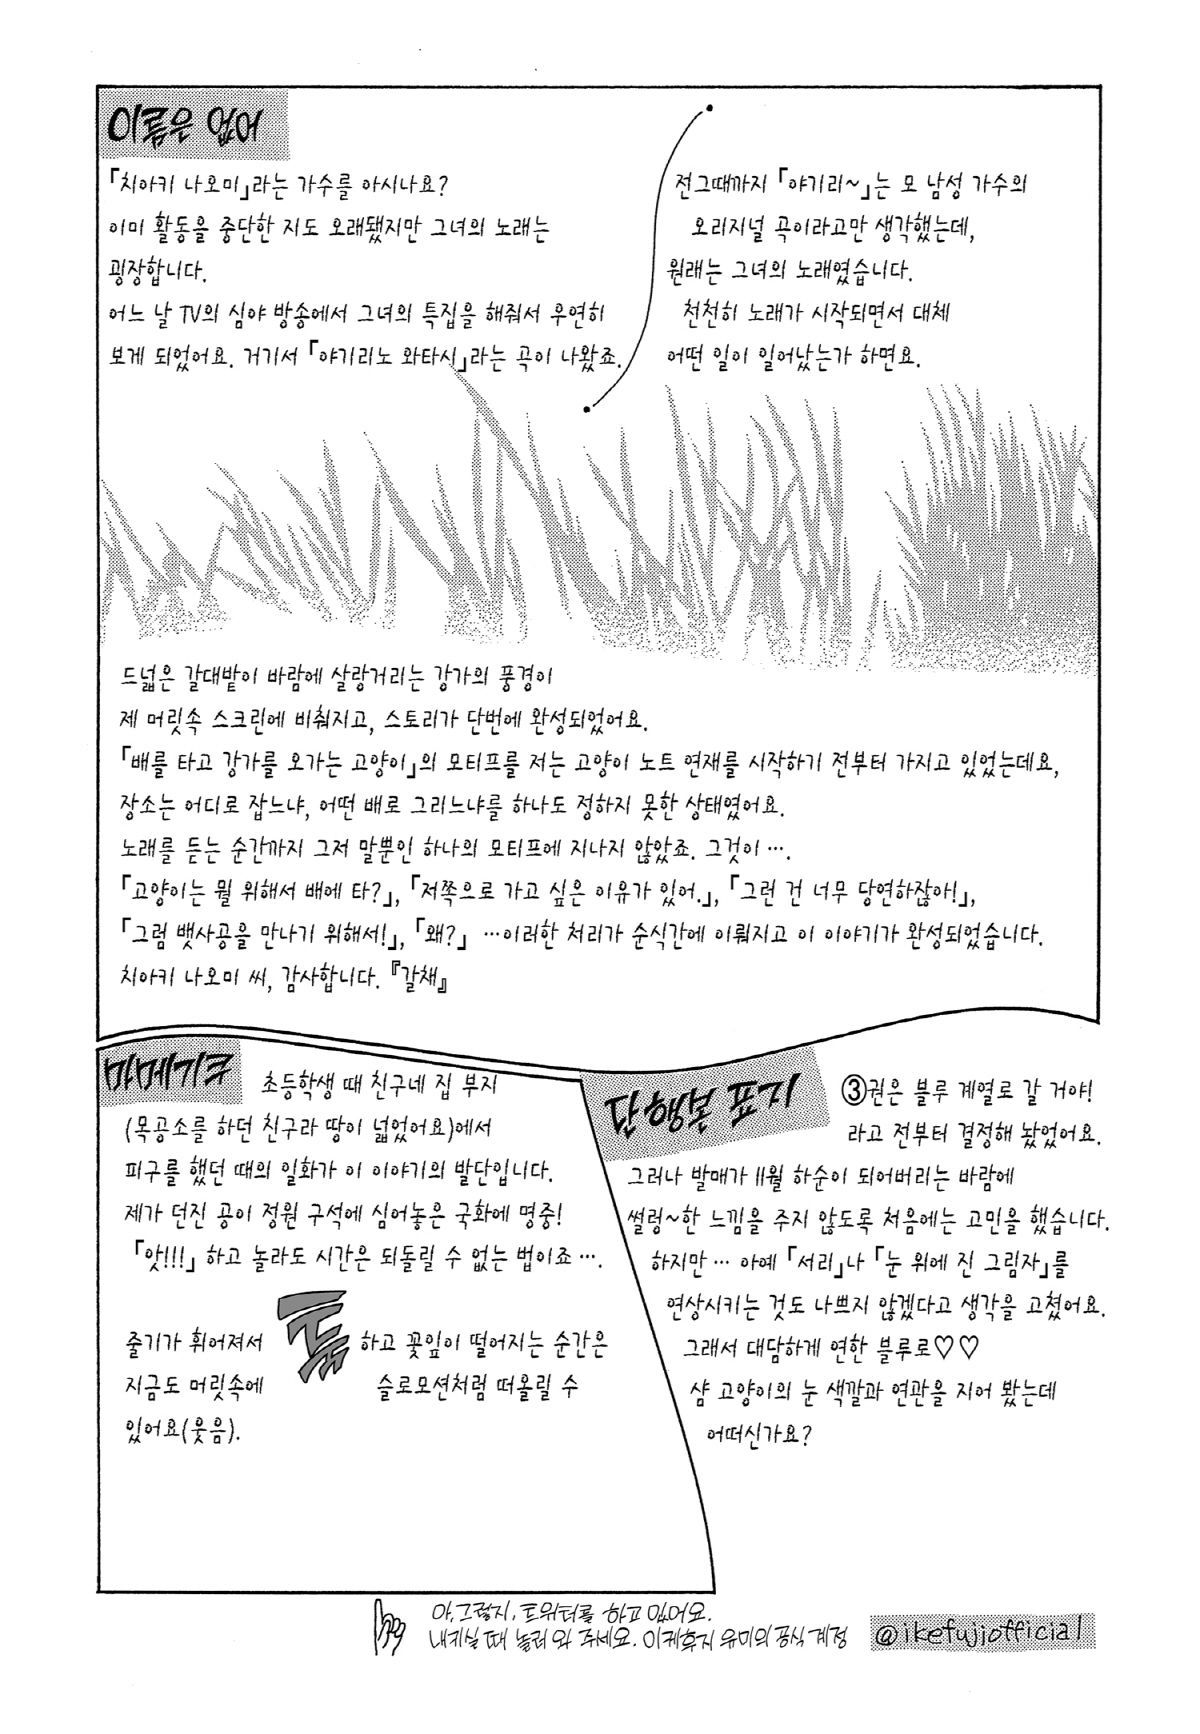 이름은 없어
「치아키 나오미」라는 가수를 아시나요?
이미 활동을 중단한 지도 오래됐지만 그녀의 노래는
굉장합니다.
어느 날 TV의 심야 방송에서 그녀의 특집을 해줘서 우연히
보게 되었어요. 거기서 「야기리노 와타시」라는 곡이 나왔죠.
전그때까지 「야기리~」는 모 남성 가수의
오리지널 곡이라고만 생각했는데,
원래는 그녀의 노래였습니다.
천천히 노래가 시작되면서 대체
어떤 일이 일어났는가 하면요.
드넓은 갈대밭이 바람에 살랑거리는 강가의 풍경이
제 머릿속 스크린에 비춰지고, 스토리가 단번에 완성되었어요.
「배를 타고 강가를 오가는 고양이」의 모티프를 저는 고양이 노트 연재를 시작하기 전부터 가지고 있었는데요,
장소는 어디로 잡느냐, 어떤 배로 그리느냐를 하나도 정하지 못한 상태였어요.
노래를 듣는 순간까지 그저 말뿐인 하나의 모티프에 지나지 않았죠. 그것이 ….
「고양이는 뭘 위해서 배에 타?」, 「저쪽으로 가고 싶은 이유가 있어.」, 「그런 건 너무 당연하잖아!」,
「그럼 뱃사공을 만나기 위해서!」, 「왜?」 …이러한 처리가 순식간에 이뤄지고 이 이야기가 완성되었습니다.
치아키 나오미 씨, 감사합니다. 『갈채』
마메기크
초등학생 때 친구네 집 부지
(목공소를 하던 친구라 땅이 넓었어요)에서
피구를 했던 때의 일화가 이 이야기의 발단입니다.
제가 던진 공이 정원 구석에 심어놓은 국화에 명중!
「앗!!!」 하고 놀라도 시간은 되돌릴 수 없는 법이죠 ….
줄기가 휘어져서 툭 하고 꽃잎이 떨어지는 순간은
지금도 머릿속에 슬로모션처럼 떠올릴 수
있어요(웃음).
단행본 표지
③권은 블루 계열로 갈 거야!
라고 전부터 결정해 놨었어요.
그러나 발매가 11월 하순이 되어버리는 바람에
썰렁~한 느낌을 주지 않도록 처음에는 고민을 했습니다.
하지만 … 아예 「서리」나 「눈 위에 진 그림자」를
연상시키는 것도 나쁘지 않겠다고 생각을 고쳤어요.
그래서 대담하게 연한 블루로♡♡
샴 고양이의 눈 색깔과 연관을 지어 봤는데
어떠신가요?
아, 그렇지, 트위터를 하고 있어요.
내키실 때 놀러 와 주세요. 이케후지 유미의 공식 계정 @ikefujiofficial